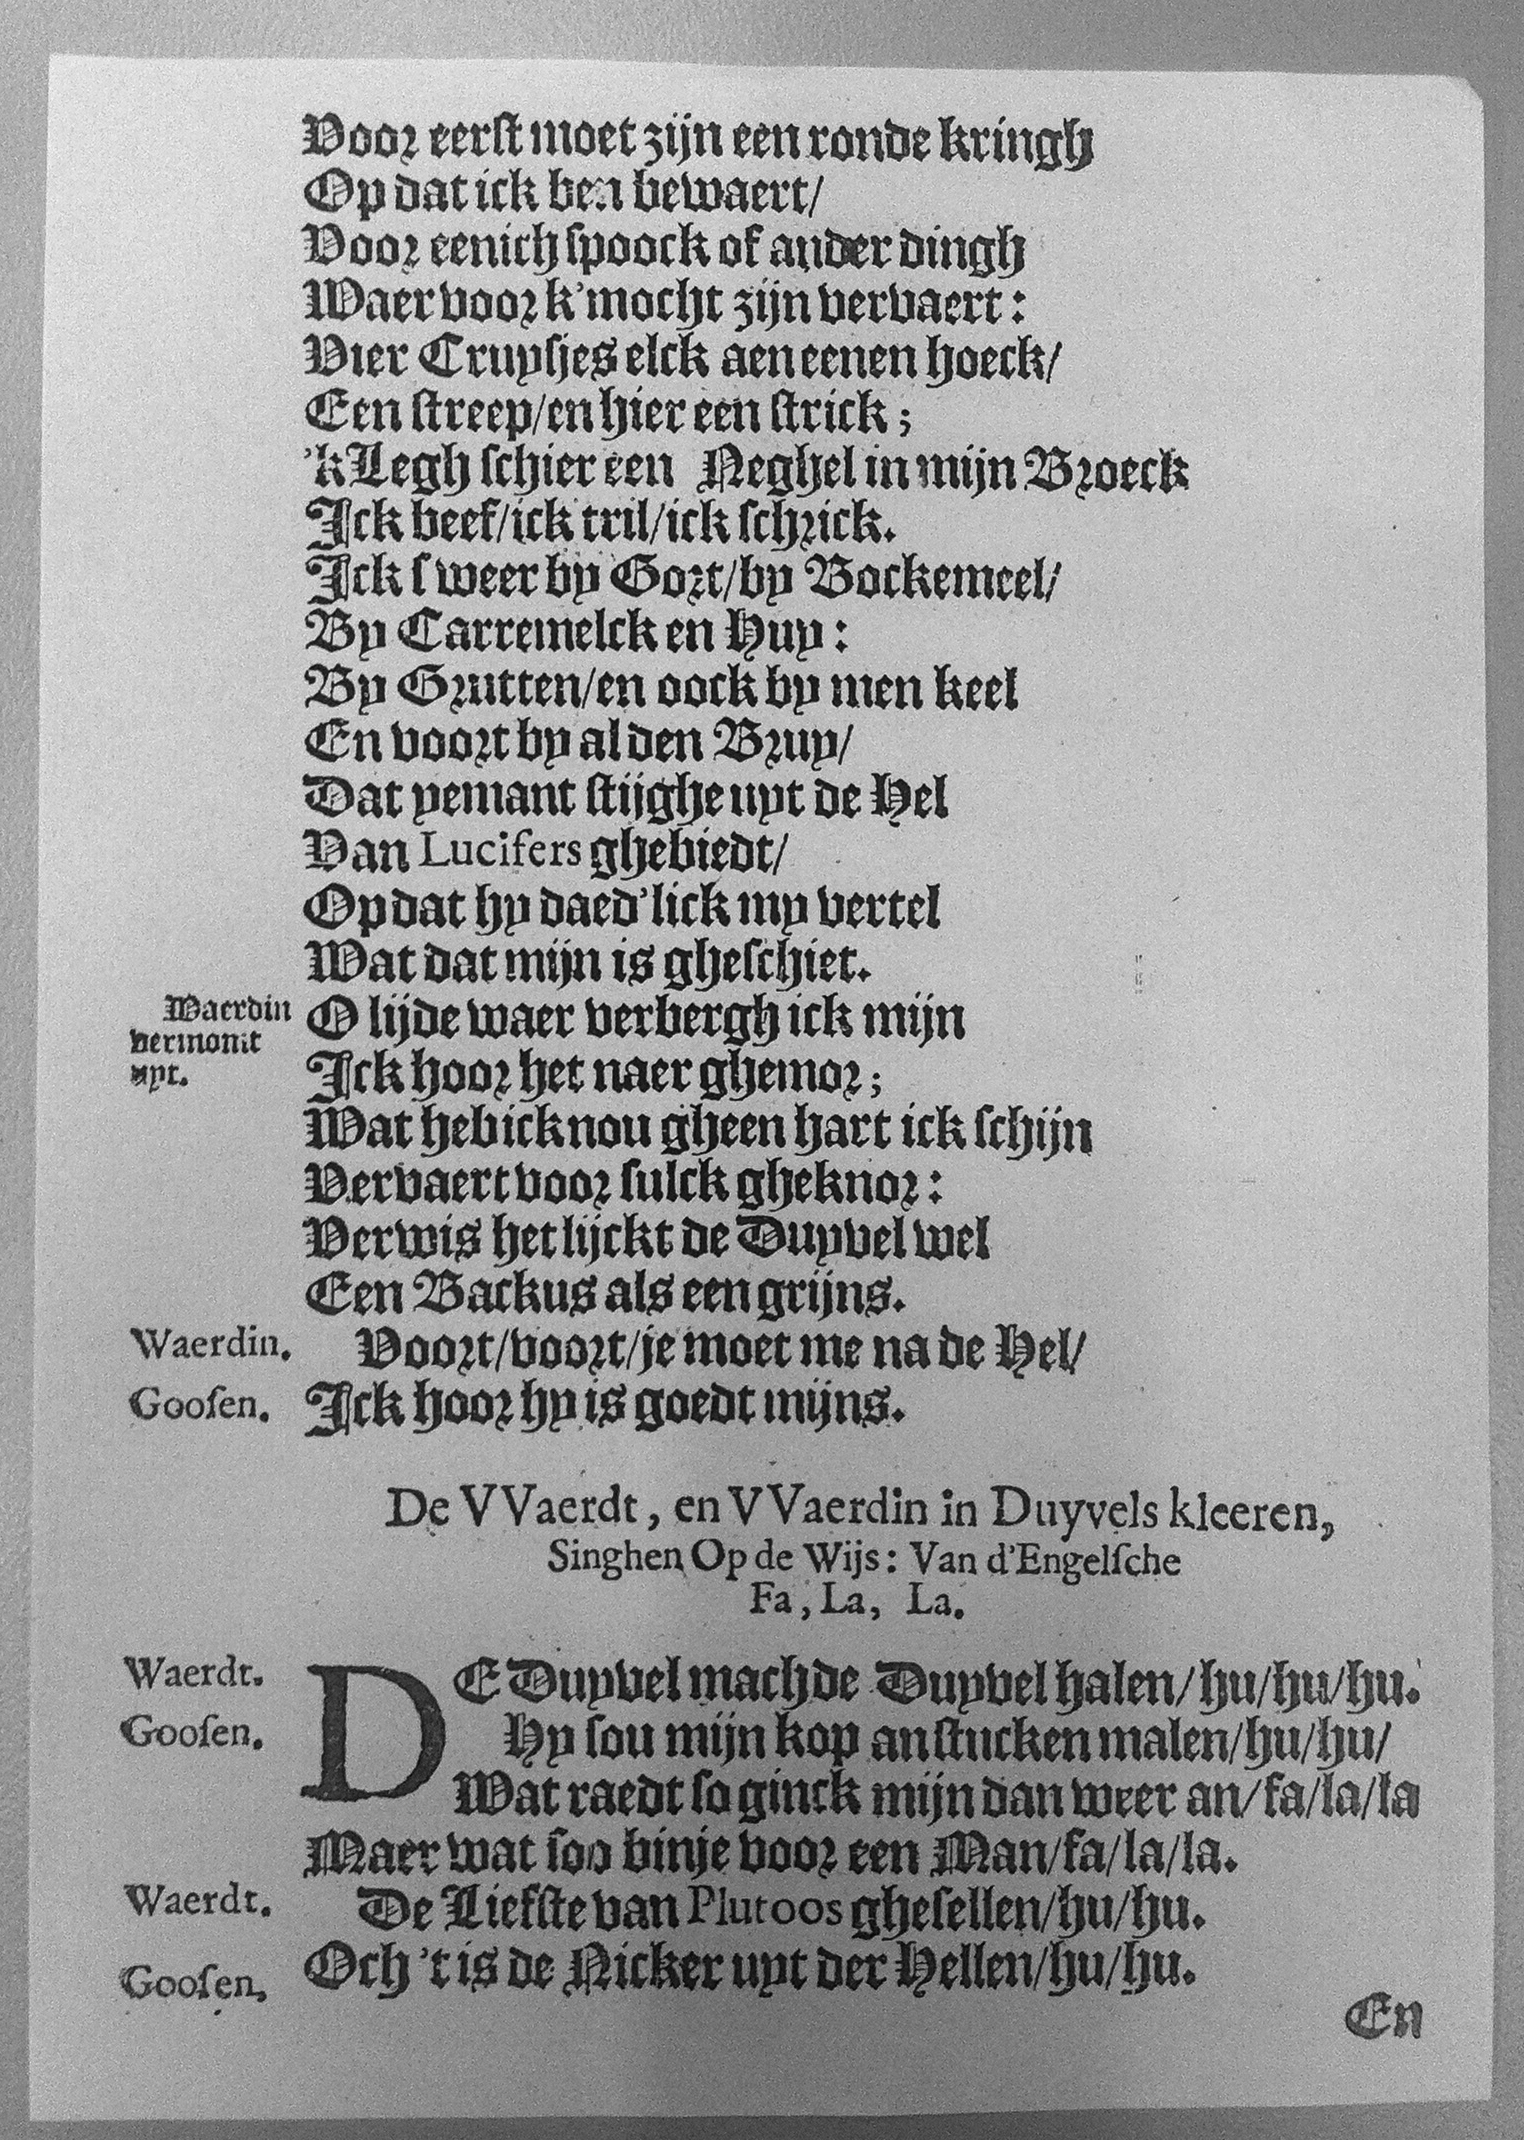 Voor eerst moet zijn een ronde kringh
Op dat ick ben bewaert/
Voor eenich spoock of ander dingh
Waer voor k'mocht zijn vervaert:
Vier Cruysjes elck aen eenen hoeck/
Een streep/en hier een strick;
'k Legh schier een Neghel in mijn Broeck
Ick beef/ick tril/ick schrick.
Ick sweer by Gort/by Bockemeel/
By Carremelck en Huy:
By Grutten/en oock by men keel
En voort by al den Bruy/
Dat yemant stijghe uyt de Hel
Van Lucifers ghebiedt/
Op dat hy daed'lick my vertel
Wat dat mijn is gheschiet.
Waerdin vermomt uyt.
O lijde waer verbergh ick mijn
Ick hoor het naer ghemor;
Wat heb ick nou gheen hart ick schijn
Vervaert voor sulck gheknor:
Verwis het lijckt de Duyvel wel
Een Backus als een grijns.
Waerdin. Voort/voort/je moet me na de Hel/
Goosen. Ick hoor hy is goedt mijns.
De VVaerdt, en VVaerdin in Duyvels kleeren,
Singhen Op de Wijs: Van d'Engelsche
Fa, La, La.
Waerdt. DE Duyvel mach de Duyvel halen/hu/hu/hu.
Goosen. Hy sou mijn kop an stucken malen/hu/hu/
Wat raedt so ginck mijn dan weer an/fa/la/la
Maer wat soo binje voor een Man/fa/la/la.
Waerdt. De Liefste van Plutoos ghesellen/hu/hu.
Goosen, Och 't is de Nicker uyt der Hellen/hu/hu.
En